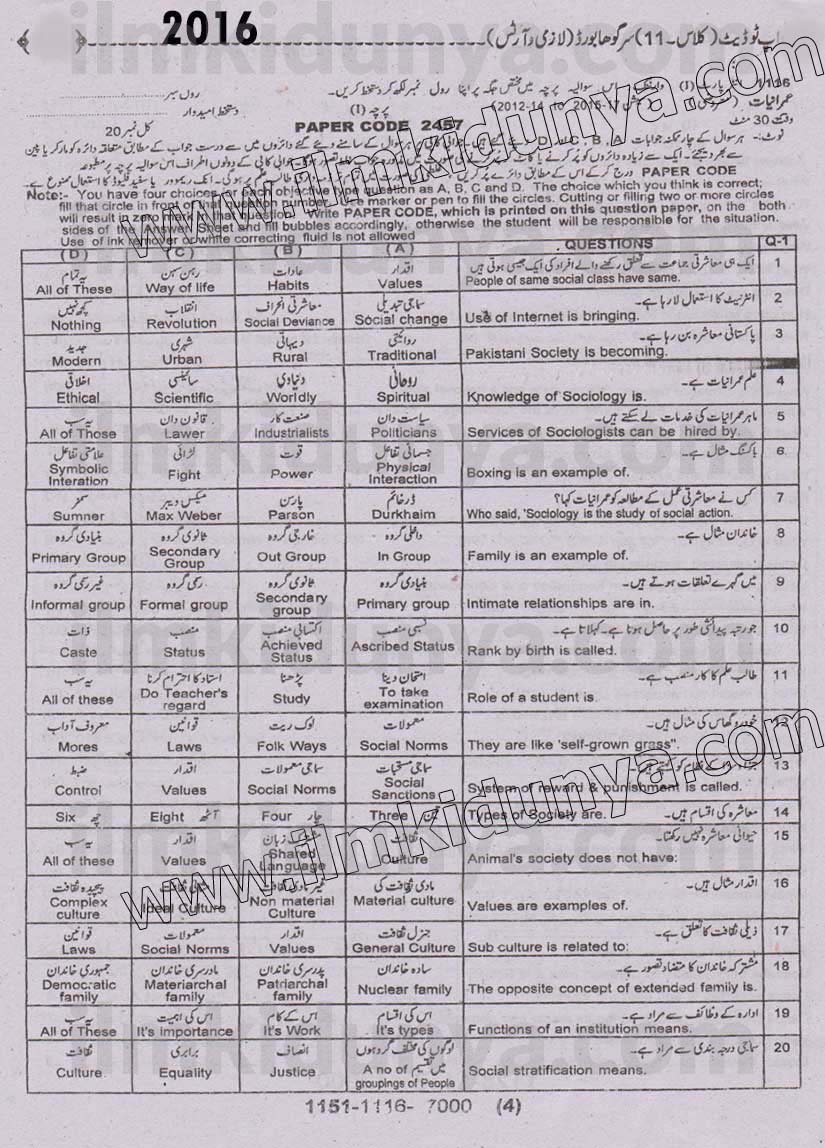 2016
اپ ٹو ڈیٹ (کلاس ۔ 11) سرگودھا بورڈ (لازمی رآرٹس)
1116
رول نمبر
عمرانیات
پرچہ (I)
دستخط امیدوار
وقت 30 منٹ
PAPER CODE 2457
کل نمبر 20
Note:- You have four choices for each objective type question as A, B, C and D. The choice which you think is correct;
fill that circle in front of that question number. Use marker or pen to fill the circles. Cutting or filling two or more circles
will result in zero mark in that question. Write PAPER CODE, which is printed on this question paper, on the both
sides of the Answer Sheet and fill bubbles accordingly, otherwise the student will be responsible for the situation.
Use of ink remover or white correcting fluid is not allowed
(D) (C) (B) (A) QUESTIONS Q-1
یہ تمام رہن سہن عادات اقدار ایک ہی معاشرتی جماعت سے تعلق رکھنے والے افراد کی ایک جیسی ہوتی ہیں 1
All of These Way of life Habits Values People of same social class have same.
کچھ نہیں انقلاب معاشرتی انحراف سماجی تبدیلی انٹرنیٹ کا استعمال لا رہا ہے۔ 2
Nothing Revolution Social Deviance Social change Use of Internet is bringing.
جدید شہری دیہاتی روایتی پاکستانی معاشرہ بن رہا ہے۔ 3
Modern Urban Rural Traditional Pakistani Society is becoming.
اخلاقی سائنسی دنیاوی روحانی علم عمرانیات ہے۔ 4
Ethical Scientific Worldly Spiritual Knowledge of Sociology is.
یہ سب قانون دان صنعت کار سیاست دان ماہر عمرانیات کی خدمات لے سکتے ہیں۔ 5
All of Those Lawer Industrialists Politicians Services of Sociologists can be hired by.
علامتی تفاعل لڑائی قوت جسمانی تفاعل باکسنگ مثال ہے۔ 6
Symbolic Interation Fight Power Physical Interaction Boxing is an example of.
سمنر میکس ویبر پارسن ڈرخائم کس نے معاشرتی عمل کے مطالعہ کو عمرانیات کہا؟ 7
Sumner Max Weber Parson Durkhaim Who said, 'Sociology is the study of social action.
بنیادی گروہ ثانوی گروہ خارجی گروہ داخلی گروہ خاندان مثال ہے۔ 8
Primary Group Secondary Group Out Group In Group Family is an example of.
غیر رسمی گروہ رسمی گروہ ثانوی گروہ بنیادی گروہ میں گہرے تعلقات ہوتے ہیں۔ 9
Informal group Formal group Secondary group Primary group Intimate relationships are in.
ذات منصب اکتسابی منصب نسبی منصب جو رتبہ پیدائشی طور پر حاصل ہوتا ہے۔ کہلاتا ہے۔ 10
Caste Status Achieved Status Ascribed Status Rank by birth is called.
یہ سب استاد کا احترام کرنا پڑھنا امتحان دینا طالب علم کا کار منصب ہے۔ 11
All of these Do Teacher's regard Study To take examination Role of a student is.
معروف آداب قوانین لوک ریت معمولات خودرو گھاس کی مثال ہیں۔ 12
Mores Laws Folk Ways Social Norms They are like 'self-grown grass".
ضبط اقدار سماجی معمولات سماجی مستحبات 13
Control Values Social Norms Social Sanctions System of reward & punishment is called.
Six چھ Eight آٹھ Four چار Three تین Types of Society are. معاشرہ کی اقسام ہیں۔ 14
یہ سب اقدار مشترک زبان ثقافت حیوانی معاشرہ نہیں رکھتا۔ 15
All of these Values Shared Language Culture Animal's society does not have:
پیچیدہ ثقافت مثالی ثقافت غیر مادی ثقافت مادی ثقافت کی اقدار مثال ہیں۔ 16
Complex culture Ideal Culture Non material Culture Material culture Values are examples of.
قوانین معمولات اقدار جنرل ثقافت ذیلی ثقافت کا تعلق ہے۔ 17
Laws Social Norms Values General Culture Sub culture is related to:
جمہوری خاندان مادرسری خاندان پدرسری خاندان سادہ خاندان مشترکہ خاندان کا متضاد تصور ہے۔ 18
Democratic family Materiarchal family Patriarchal family Nuclear family The opposite concept of extended family is.
یہ سب اس کی اہمیت اس کے کام اس کی اقسام ادارہ کے وظائف سے مراد ہے۔ 19
All of These It's importance It's Work It's types Functions of an institution means.
ثقافت برابری انصاف لوگوں کی مختلف گروہوں میں تقسیم سماجی درجہ بندی سے مراد ہے۔ 20
Culture. Equality Justice A no of groupings of People Social stratification means.
1151-1116- 7000 (4)
www.ilmkidunya.com
www.ilmkidunya.com